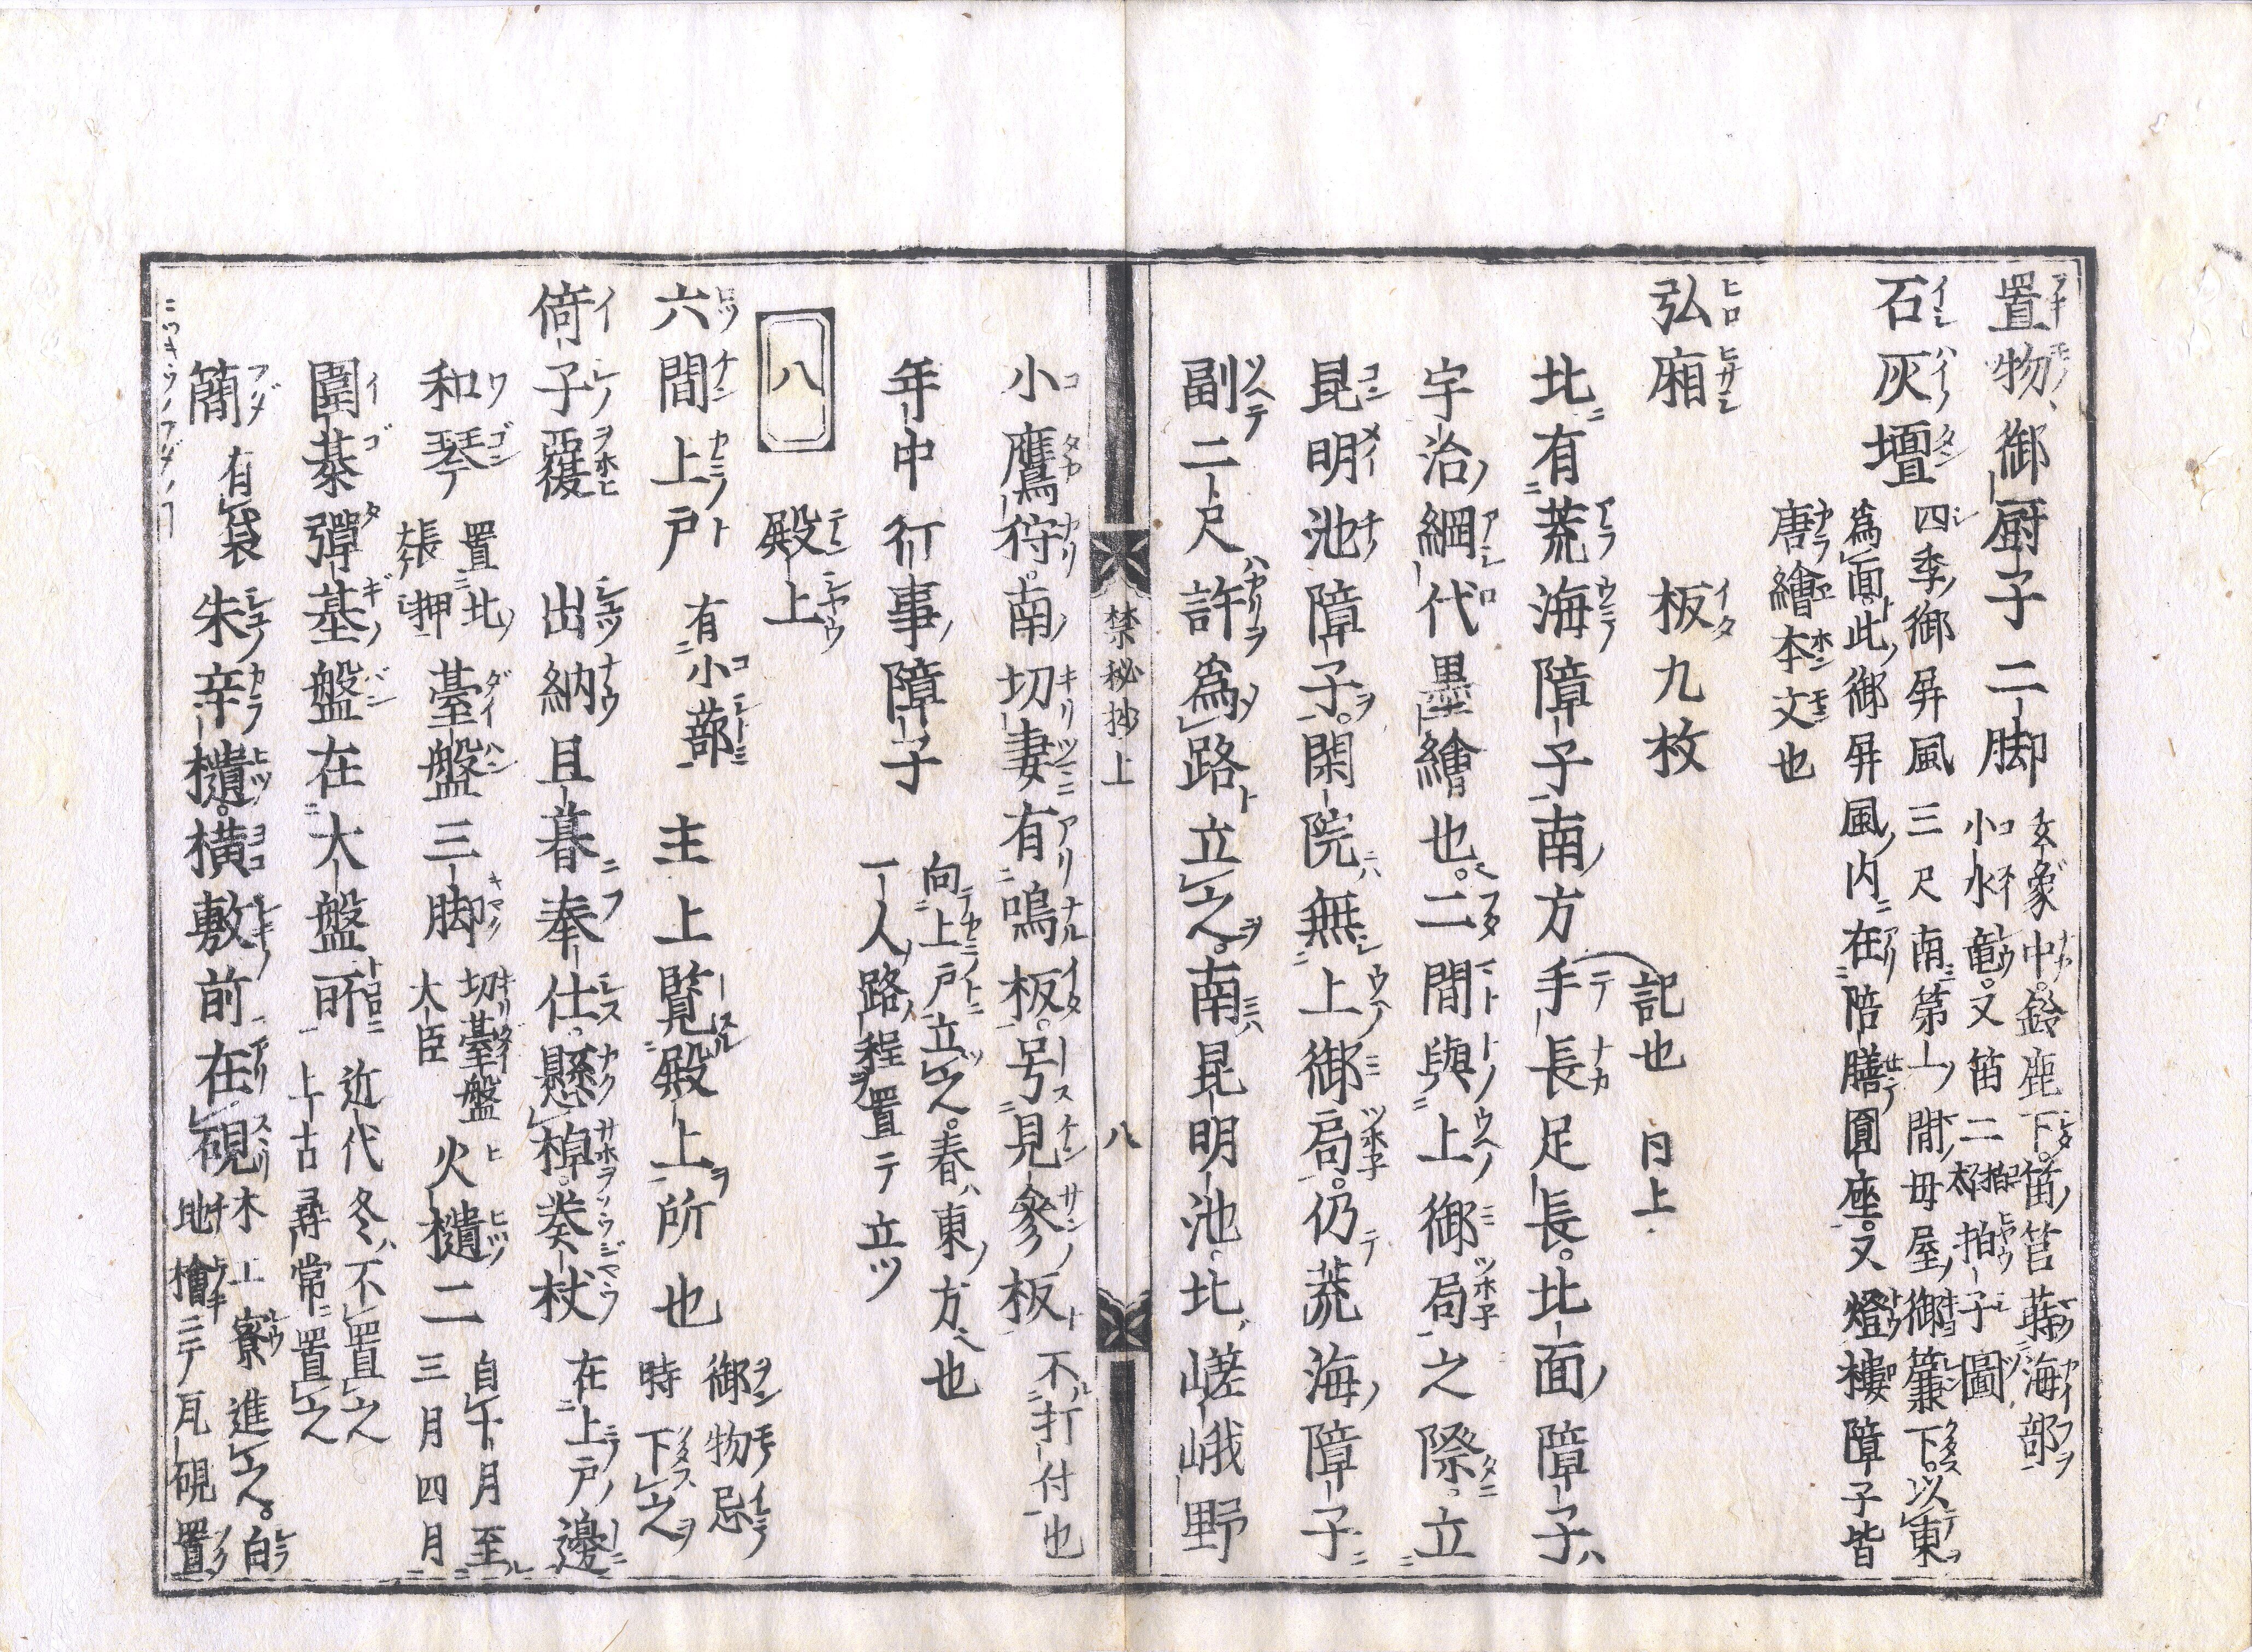 置物御厨子二脚
玄象中。鈴鹿下。笛筥蒔海部
小水竜。又笛二拍子圖
石灰壇
四季御屏風三尺南第一間母屋御簾下。以東
爲面此御屏風内在陪膳圓座。又燈樓障子皆
唐繪本文也
弘廂　板九枚
記也　日上
北有荒海障子南方手長足長。北面障子
宇治網代墨繪也。二間與上御局之際立
昆明池障子。閑院無上御局。仍荒海障子
副二尺許爲路立之。南昆明池北嵯峨野
禁秘抄上　八
小鷹狩。南切妻有鳴板。号見參板
不打付也
年中行事障子
向上戸立之。春東方也
一人路程置テ立ツ
八　殿上
六間上戸　有小蔀　主上覧殿上所也
御物忌
時下之
倚子覆　出納旦暮奉仕懸棹。奏杖
在上戸邊
和琴
置北
張押
臺盤三脚
切臺盤
大臣
火櫃二
自十月至
三月四月
圍碁彈碁盤在大盤所
近代冬不置之
上古尋常置之
簡　有袋　朱辛櫃。横敷前在硯
木工寮進之。白
地檜ニテ瓦硯置